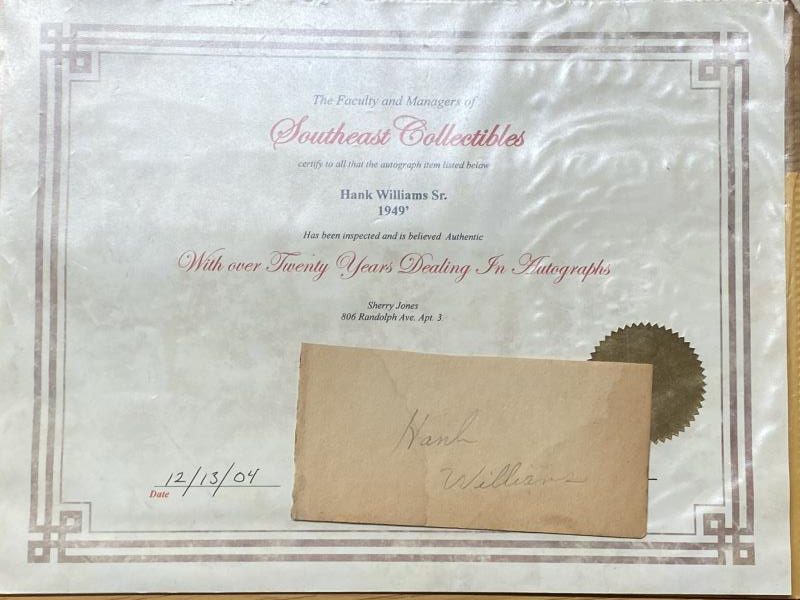 The Faculty and Managers of
Southeast Collectibles
certify to all that the autograph item listed below
Hank Williams Sr.
1949'
Has been inspected and is believed Authentic
With over Twenty Years Dealing In Autographs
Sherry Jones
806 Randolph Ave. Apt. 3
Hank
Williams
12/13/04
Date